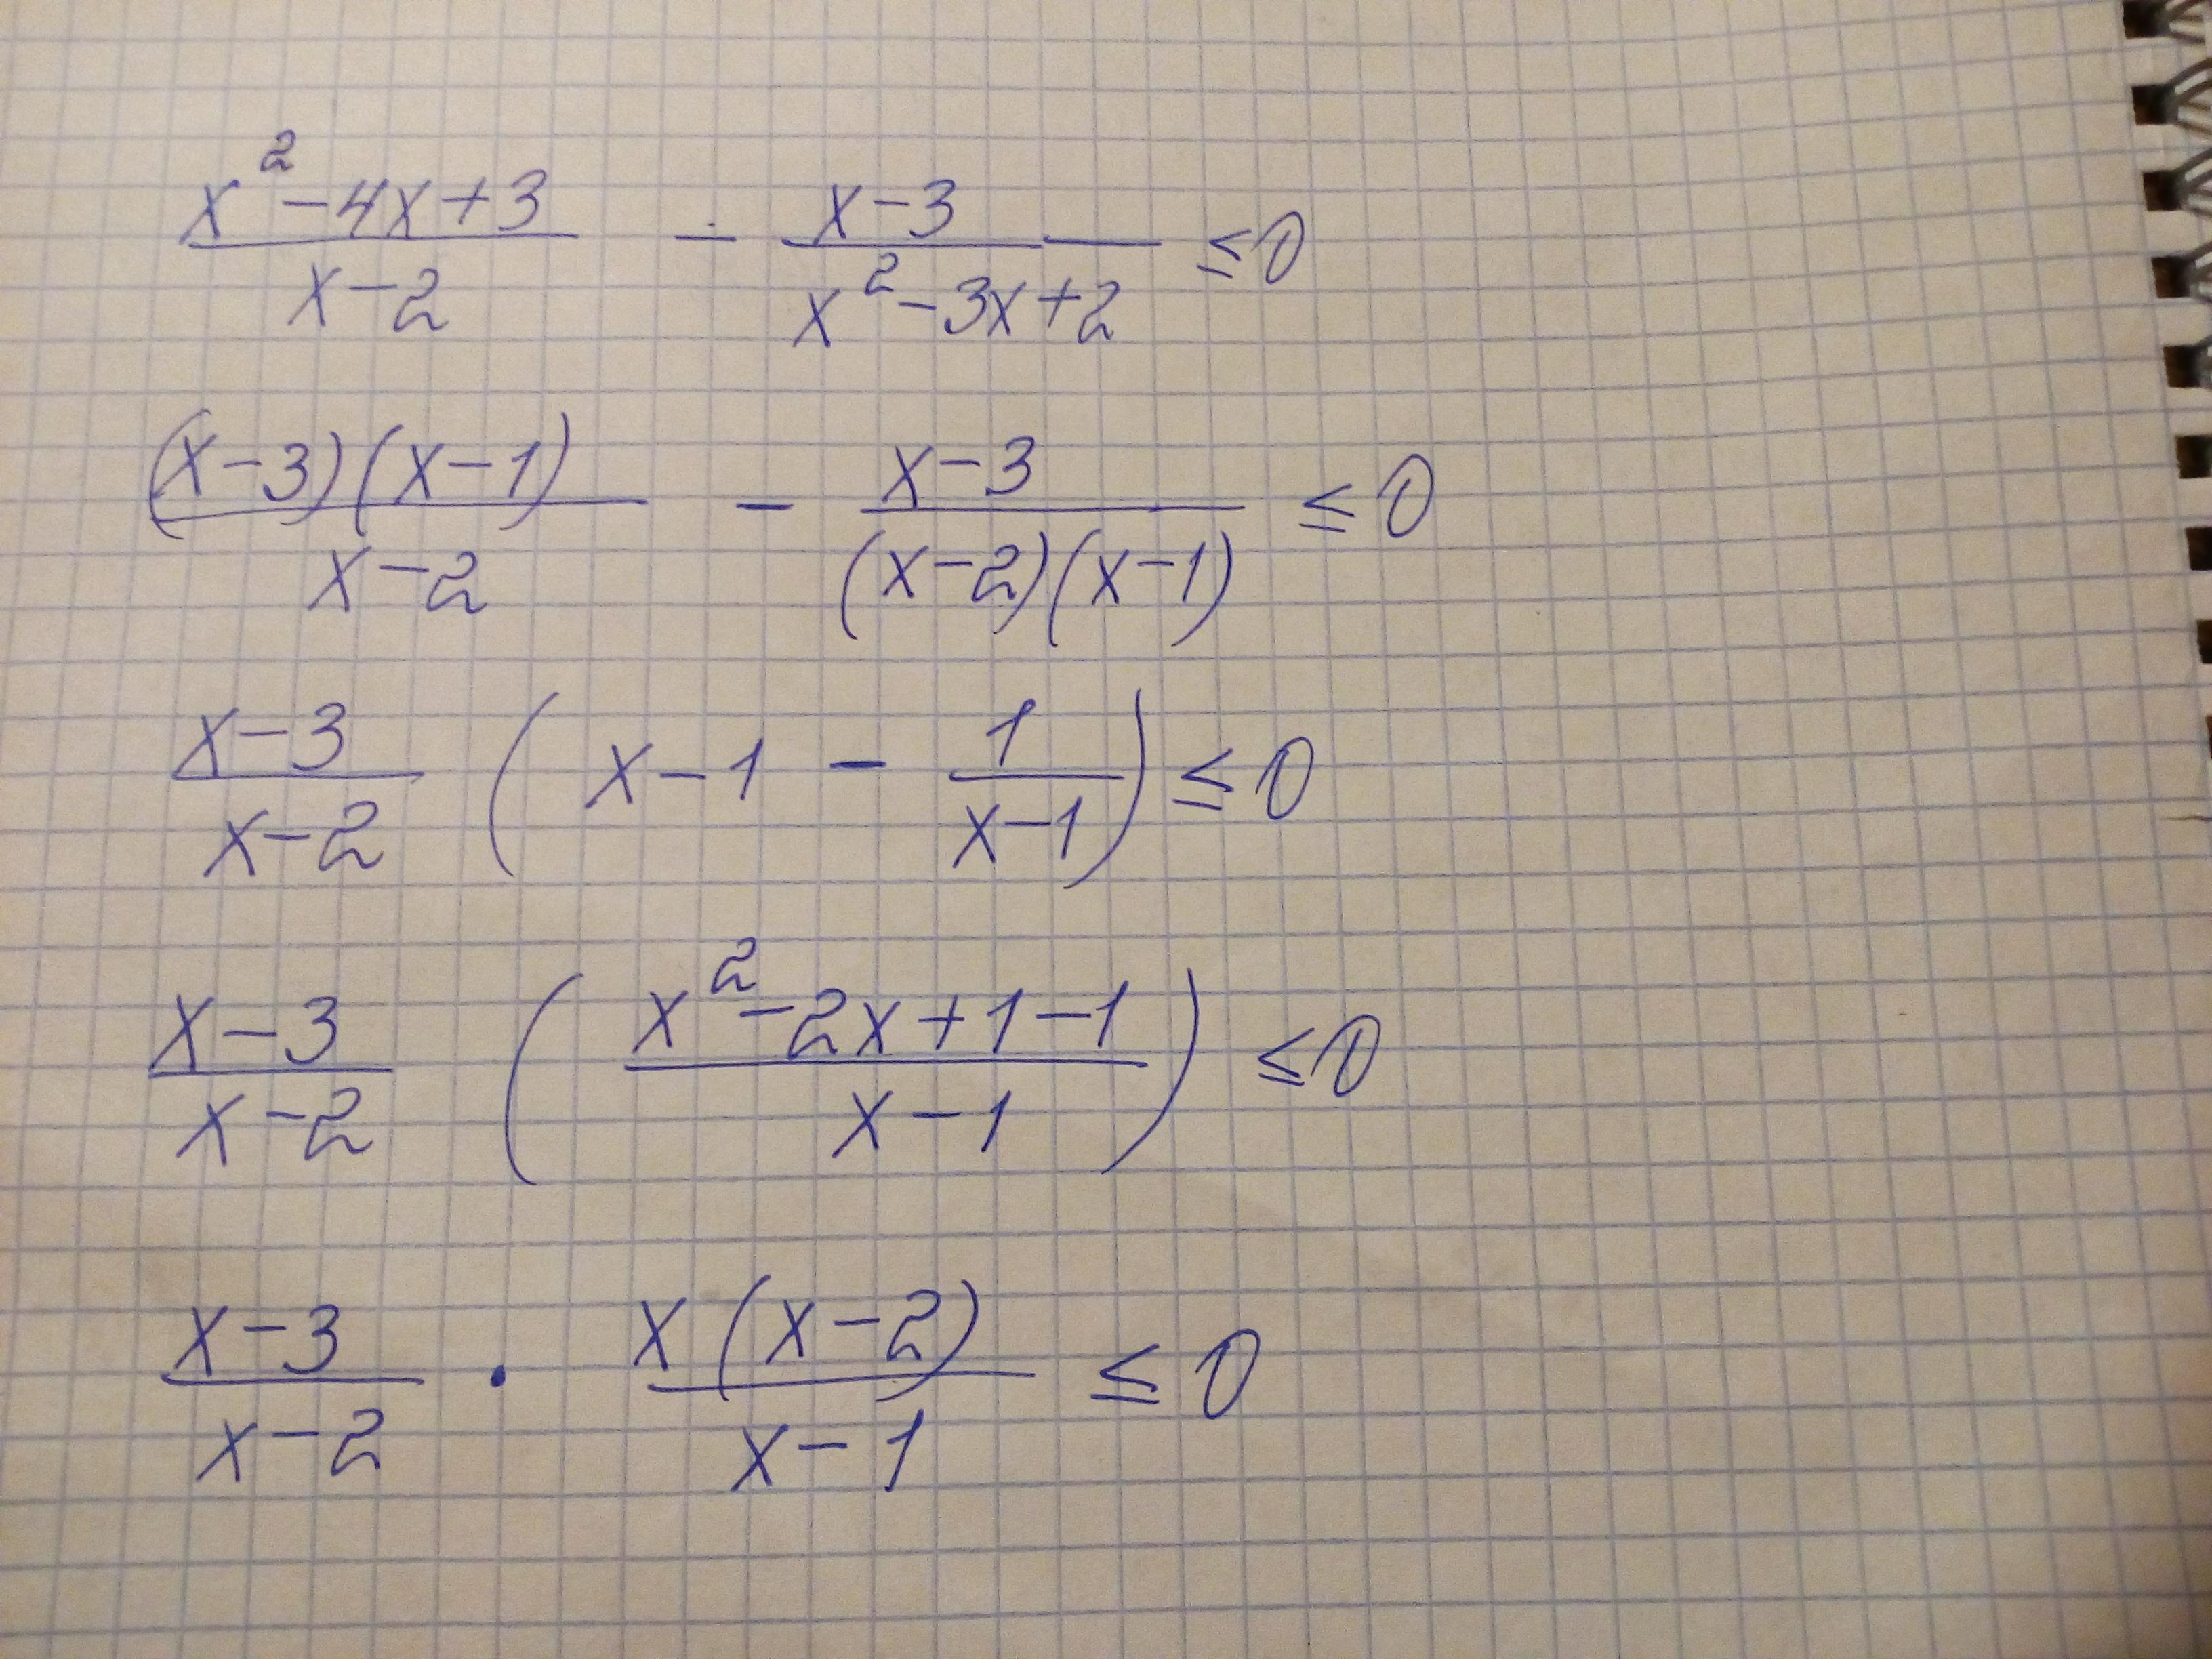 (x²-4x+3)/(x-2) - (x-3)/(x²-3x+2) ≤0
((x-3)(x-1))/(x-2) - (x-3)/((x-2)(x-1)) ≤0
(x-3)/(x-2) (x-1 - 1/(x-1)) ≤0
(x-3)/(x-2) ((x²-2x+1-1)/(x-1)) ≤0
(x-3)/(x-2) · (x(x-2))/(x-1) ≤0